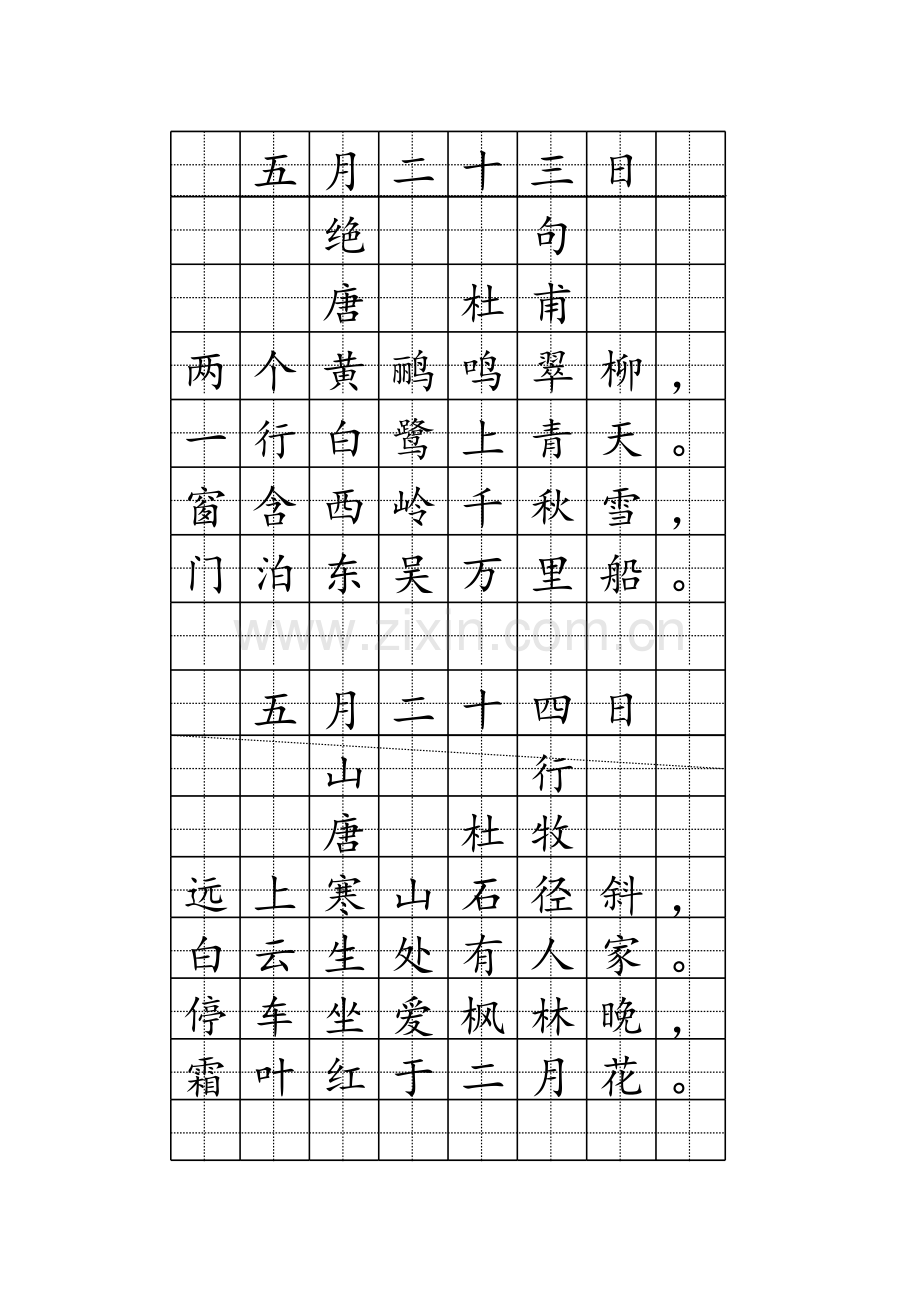 五月二十三日
绝句
唐 杜甫
两个黄鹂鸣翠柳，
一行白鹭上青天。
窗含西岭千秋雪，
门泊东吴万里船。
www.zixin.com.cn
五月二十四日
山行
唐 杜牧
远上寒山石径斜，
白云生处有人家。
停车坐爱枫林晚，
霜叶红于二月花。